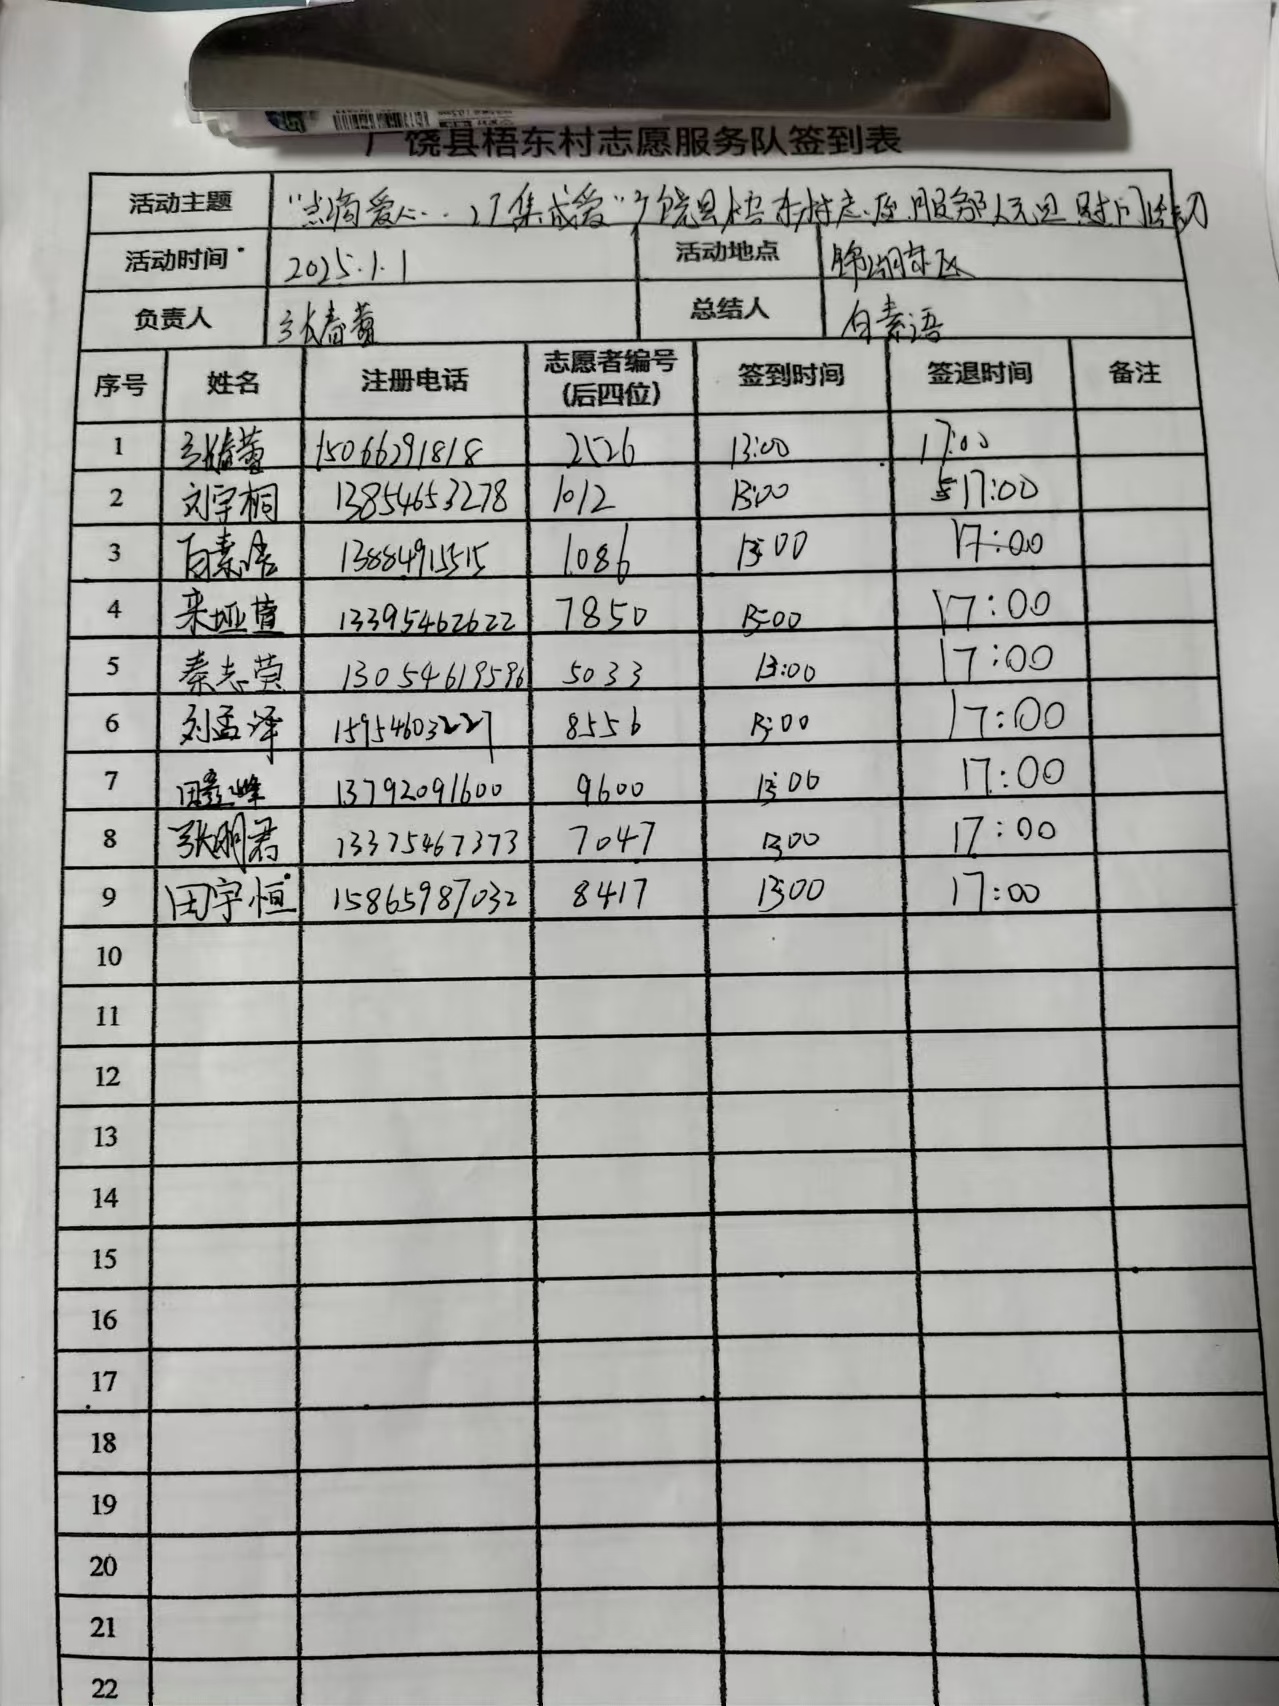 广饶县梧东村志愿服务队签到表
活动主题 "点滴爱心 汇集成爱"广饶县梧东村志愿服务队元旦 活动
活动时间 2025.1.1 活动地点 锦湖东区
负责人 张春蕾 总结人 白素语
序号 姓名 注册电话 志愿者编号(后四位) 签到时间 签退时间 备注
1 张春蕾 15066291818 2526 13:00 17:00
2 刘宇桐 13854653278 1012 13:00 17:00
3 白素语 13884915515 1086 13:00 17:00
4 来娅萱 13395462622 7850 13:00 17:00
5 秦志莹 13054619596 5033 13:00 17:00
6 刘孟泽 15954603227 8556 13:00 17:00
7 田 峰 13792091600 9600 13:00 17:00
8 张明君 13375467373 7047 13:00 17:00
9 田宇恒 15865987032 8417 13:00 17:00
10
11
12
13
14
15
16
17
18
19
20
21
22